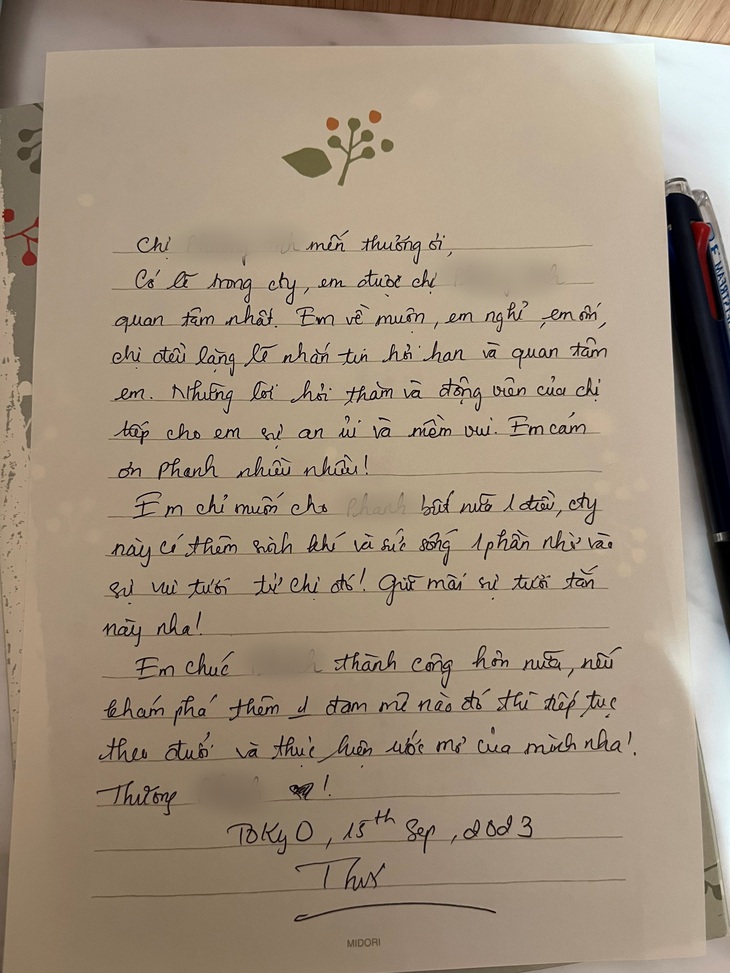 Chị mến thương ơi,
Có lẽ trong cty, em được chị
quan tâm nhất. Em về muộn, em nghỉ, em ốm,
chị đều lặng lẽ nhắn tin hỏi han và quan tâm
em. Những lời hỏi thăm và động viên của chị
tiếp cho em sự an ủi và niềm vui. Em cám
ơn Phanh nhiều nhiều!
Em chỉ muốn cho Phanh biết nữa 1 điều, cty
này có thêm sinh khí và sức sống 1 phần nhờ vào
sự vui tươi từ chị đó! Giữ mãi sự tươi tắn
này nha!
Em chúc thành công hơn nữa, nếu
khám phá thêm 1 đam mê nào đó thì tiếp tục
theo đuổi và thực hiện ước mơ của mình nha!
Thương !
TOKYO, 15th Sep, 2023
Thư
MIDORI